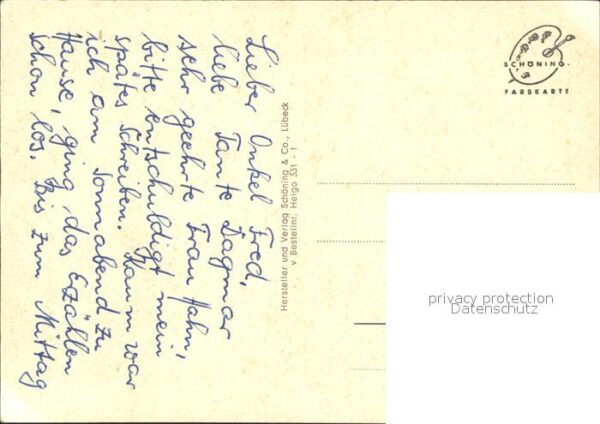 Lieber Onkel Fred,
liebe Tante Dagmar
sehr geehrte Frau Hahn,
bitte entschuldigt mein
spätes Schreiben. Kaum war
ich am Sonnabend zu
Hause, ging das Erzählen
schon los. Bis zum Mittag
Hersteller und Verlag Schöning & Co., Lübeck
v Bestellnr. Helgo 331 - 1
SCHÖNING
FARBKARTE
privacy protection
Datenschutz